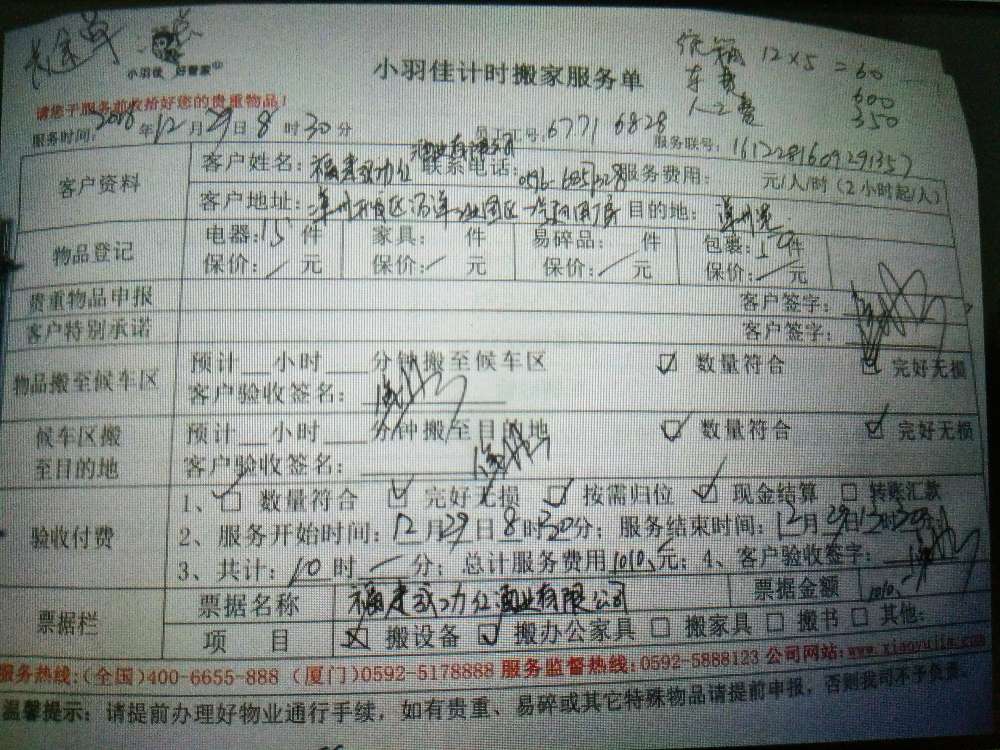 长途单
小羽佳 好管家
小羽佳计时搬家服务单
12×5=60
车费 600
人工费 350
请您于服务前收拾好您的贵重物品!
服务时间:2016年12月29日8时30分
员工工号:6771 6828
服务联号:1612281609291357
客户资料
客户姓名:福建 联系电话:0596-6857228 服务费用: 元/人/时(2小时起/人)
客户地址:漳州开发区 目的地:漳州港
物品登记
电器:15件 家具: 件 易碎品: 件 包装: 件
保价:/元 保价:/元 保价:/元 保价:/元
贵重物品申报 客户签字:
客户特别承诺 客户签字:
物品搬至候车区
预计 小时 分钟搬至候车区 ☑ 数量符合 ☑ 完好无损
客户验收签名:
候车区搬至目的地
预计 小时 分钟搬至目的地 ☑ 数量符合 ☑ 完好无损
客户验收签名:
验收付费
1、☑ 数量符合 ☑ 完好无损 ☑ 按需归位 ☑ 现金结算 □ 转账汇款
2、服务开始时间:12月29日8时30分;服务结束时间:12月29日13时30分
3、共计:10时 一 分;总计服务费用1010元;4、客户验收签字:
票据栏
票据名称 福建 酒业有限公司 票据金额 1010.-
项 目 ☒ 搬设备 ☑ 搬办公家具 □ 搬家具 □ 搬书 □ 其他:
服务热线:(全国)400-6655-888 (厦门)0592-5178888 服务监督热线:0592-5888123 公司网站:www.xiaoyujia.com
温馨提示:请提前办理好物业通行手续,如有贵重、易碎或其它特殊物品请提前申报,否则我司不予负责。